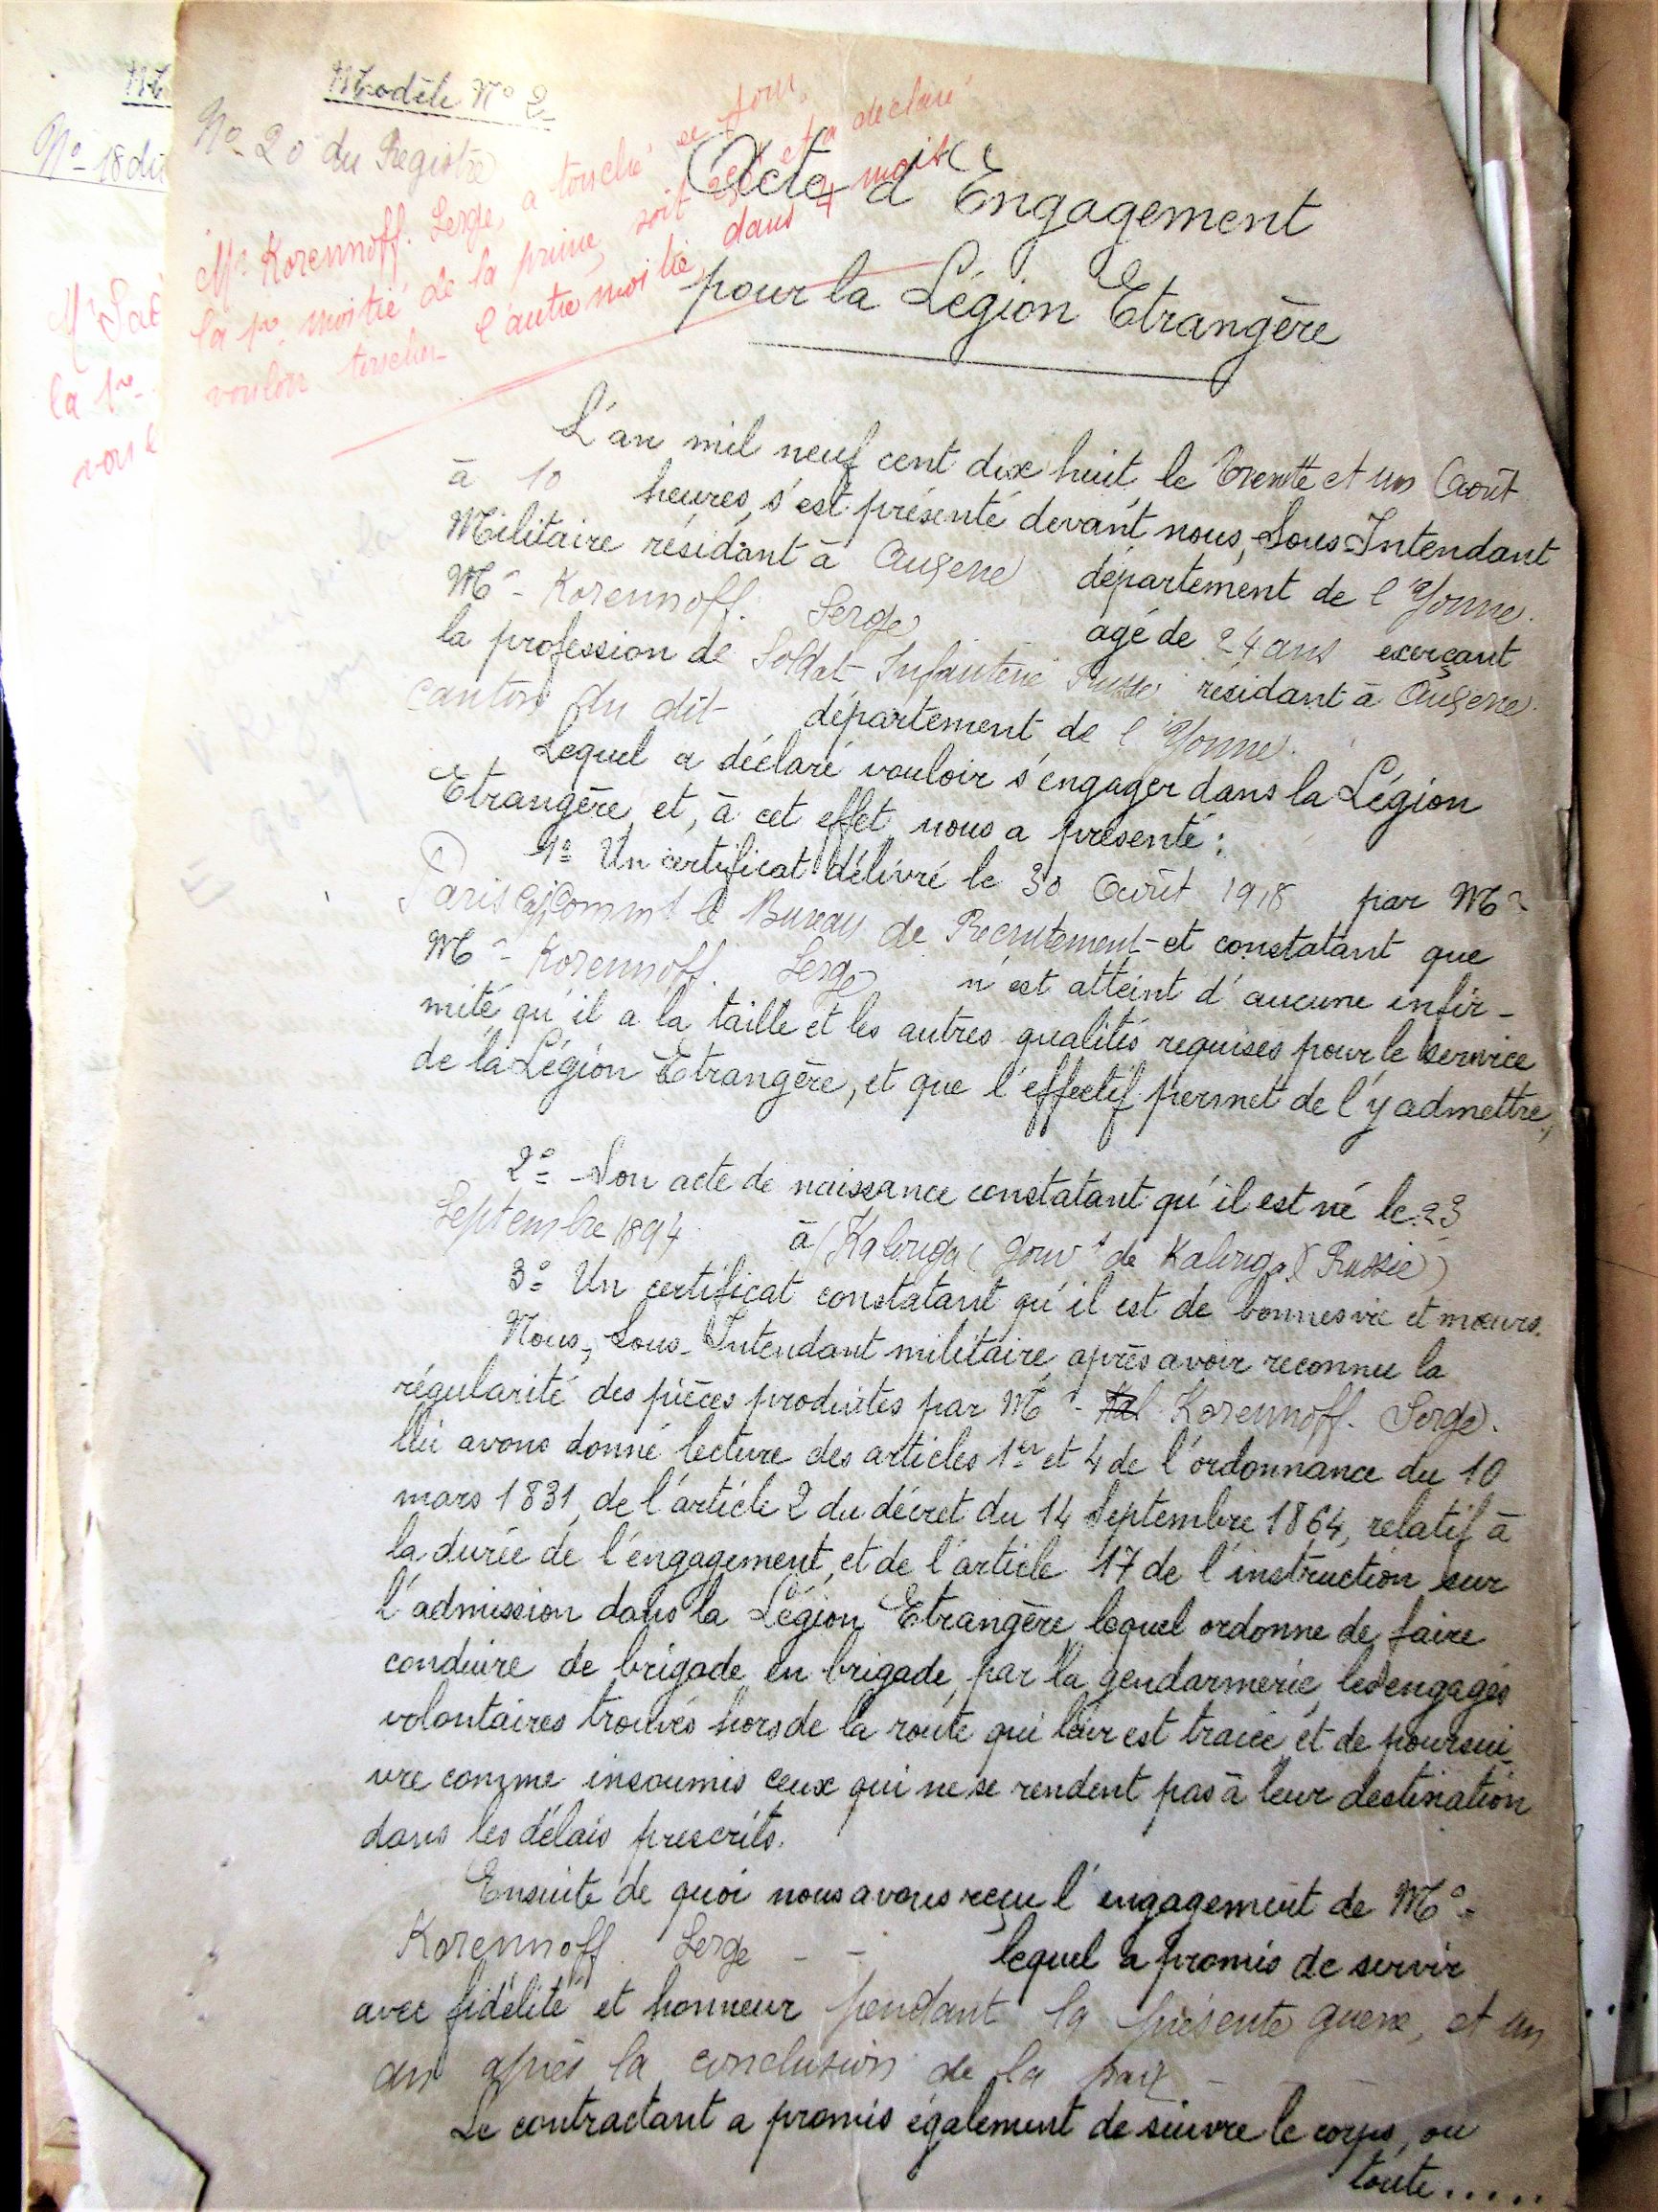 Modèle N° 2
N° 20 du Registre
Mr Korennoff. Serge, a touché ce jour
la 1re moitié de la prime, soit 250 et a déclaré
vouloir toucher l'autre moitié, dans 4 mois
Acte d'Engagement
pour la Légion Etrangère
L'an mil neuf cent dix huit, le Trente et un Août
à 10 heures, s'est présenté devant nous, Sous-Intendant
Militaire résidant à Auxerre département de l'Yonne.
Mr Korennoff. Serge agé de 24 ans exerçant
la profession de Soldat Infanterie Russe residant à Auxerre
canton du dit département de l'Yonne.
Lequel a déclaré vouloir s'engager dans la Légion
Etrangère, et, à cet effet nous a présenté :
1° Un certificat délivré le 30 Août 1918 par Mr
Paris Commt le Bureau de Recrutement et constatant que
Mr Korennoff. Serge n'est atteint d'aucune infir-
mité qu'il a la taille et les autres qualités requises pour le service
de la Légion Etrangère, et que l'effectif permet de l'y admettre,
2° Son acte de naissance constatant qu'il est né le 23
Septembre 1894 à Kalouga (Gouvt de Kalouga) (Russie)
3° Un certificat constatant qu'il est de bonnes vie et mœurs.
Nous, Sous-Intendant militaire, après avoir reconnu la
régularité des pièces produites par Mr Korennoff. Serge.
lui avons donné lecture des articles 1er et 4 de l'ordonnance du 10
mars 1831, de l'article 2 du décret du 14 Septembre 1864, relatif à
la durée de l'engagement, et de l'article 17 de l'instruction sur
l'admission dans la Légion Etrangère, lequel ordonne de faire
conduire de brigade en brigade, par la gendarmerie, les engagés
volontaires trouvés hors de la route qui leur est tracée et de poursui-
vre comme insoumis ceux qui ne se rendent pas à leur destination
dans les délais prescrits.
Ensuite de quoi nous avons reçu l'engagement de Mr
Korennoff Serge - - lequel a promis de servir
avec fidélité et honneur pendant la présente guerre, et un
an après la conclusion de la paix. -
Le contractant a promis également de suivre le corps, ou
toute.....
N° 18 du
la 1re